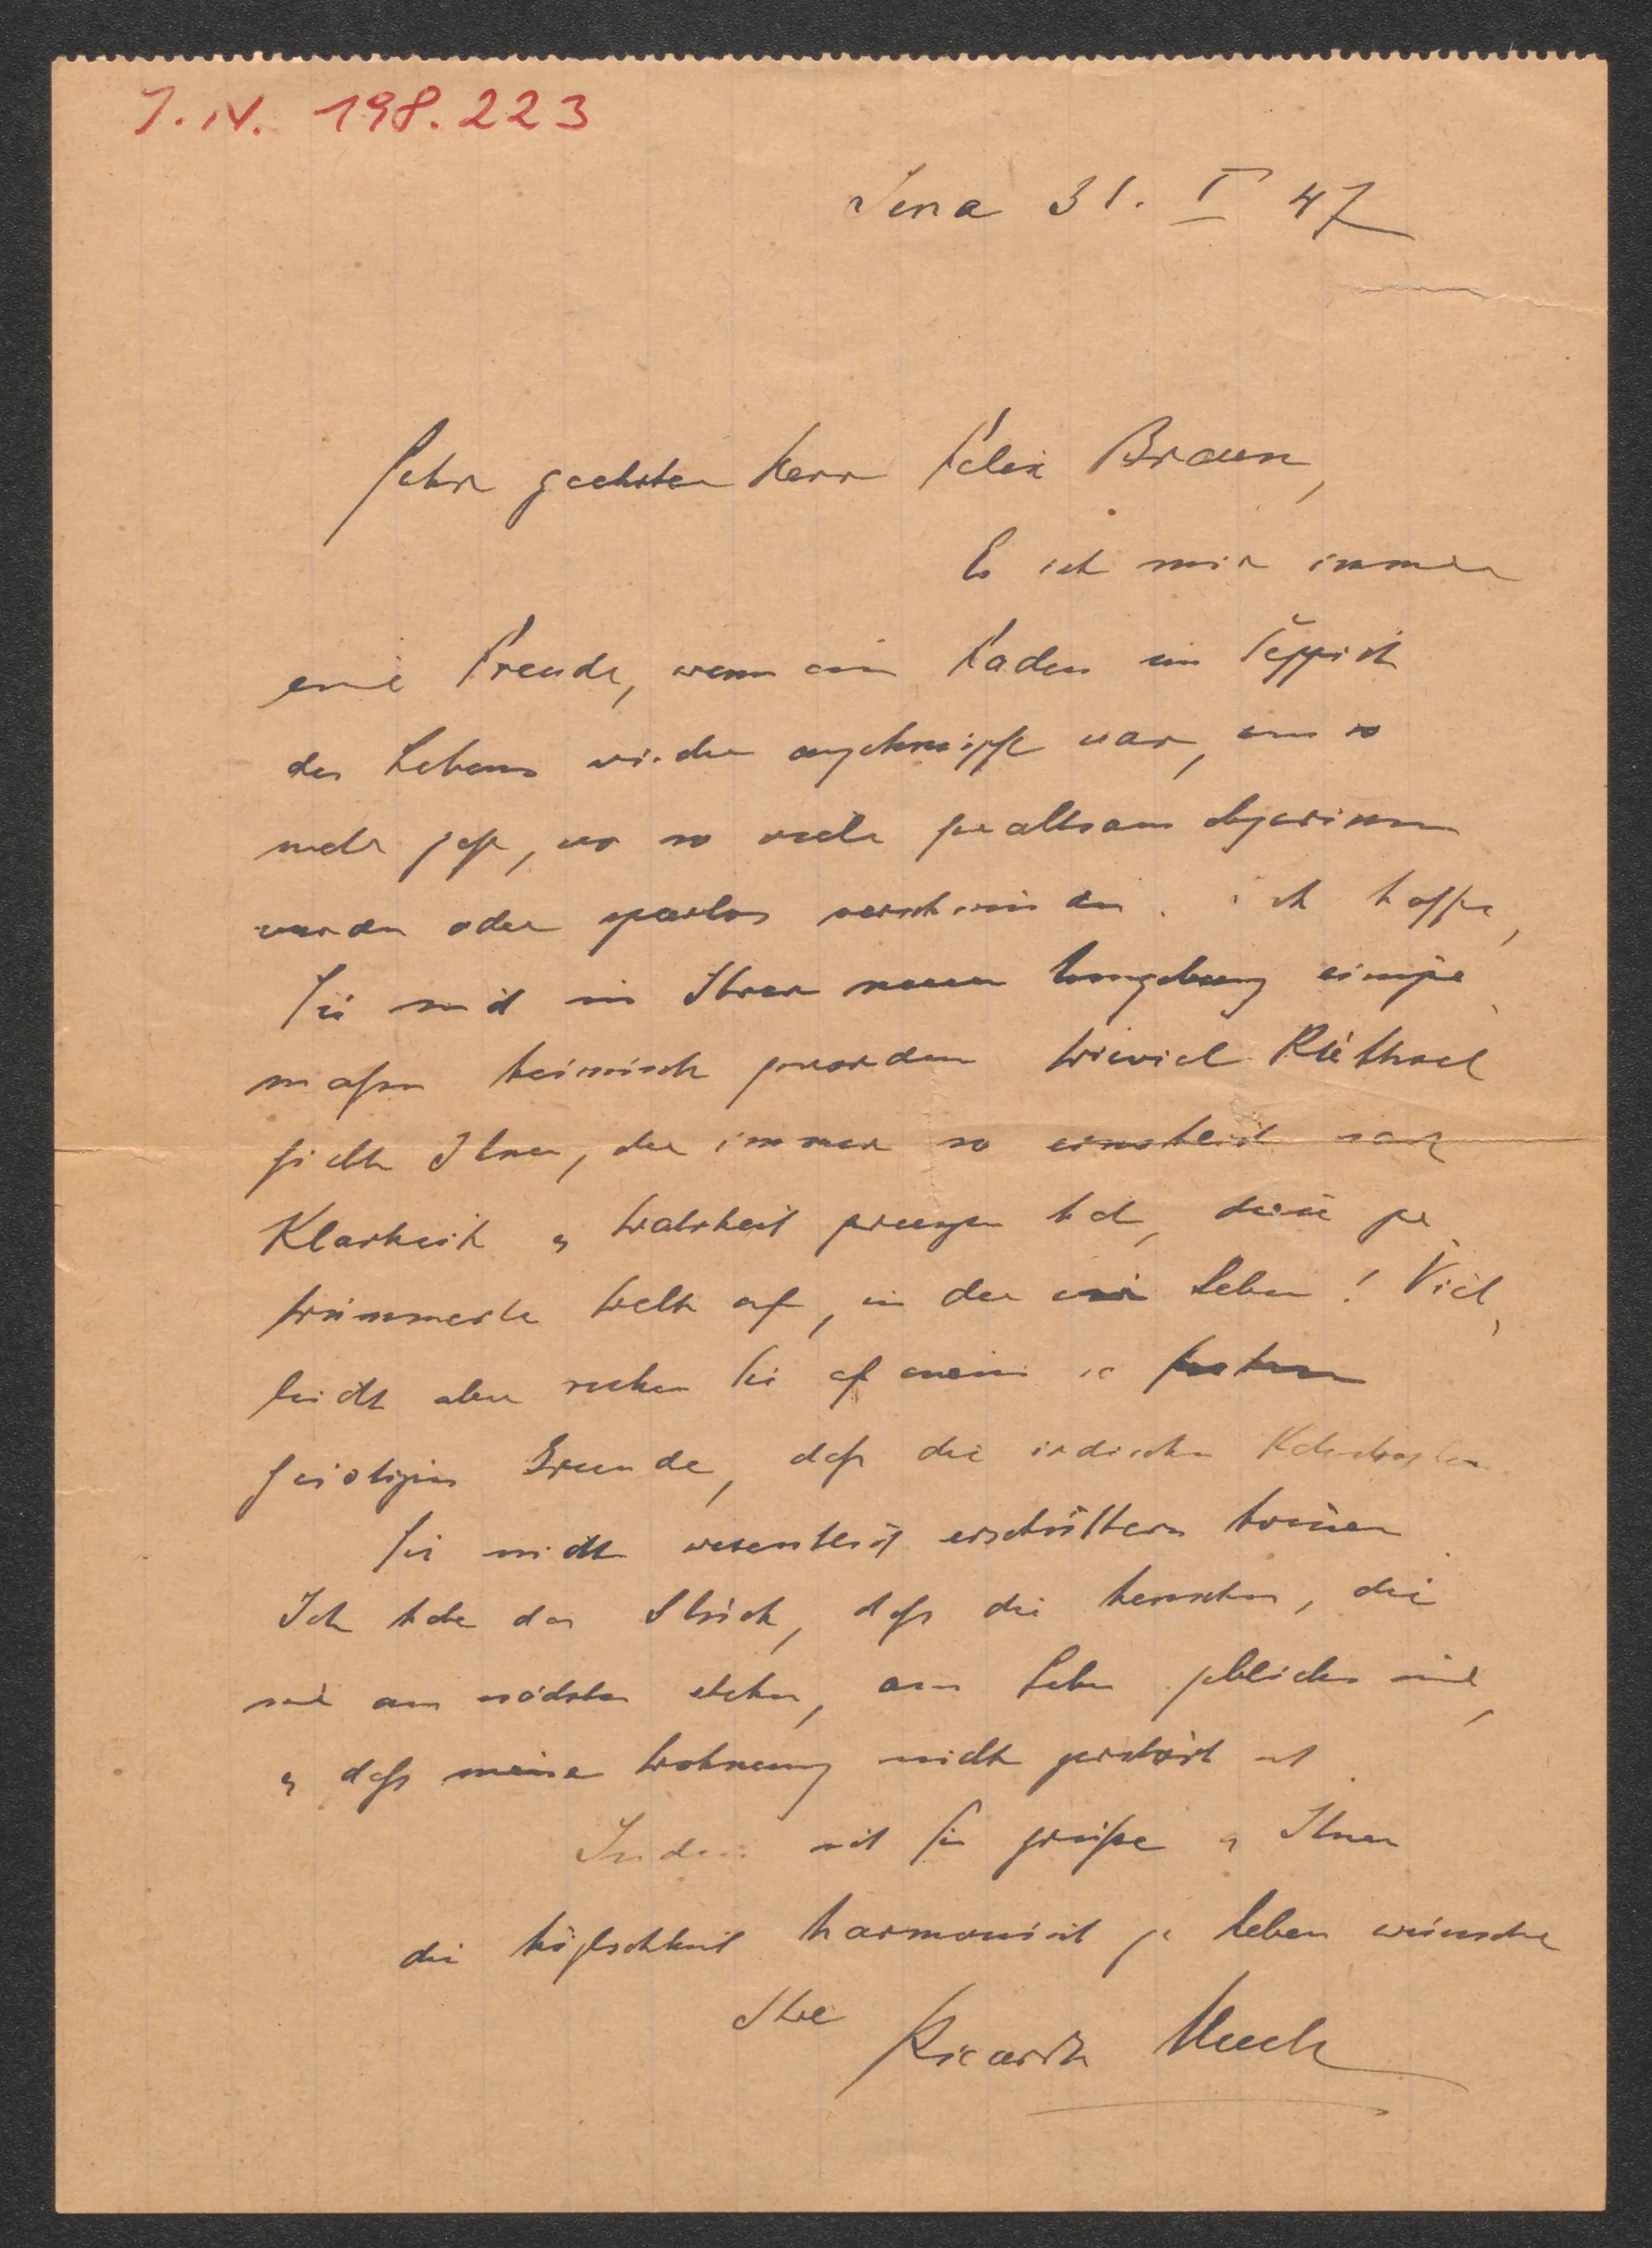 I. N. 198.223
Jena 31. I 47
Sehr geehrter Herr Felix Braun,
Es ist mir immer
eine Freude, wenn ein Faden im Teppich
des Lebens wieder angeknüpft war, um so
mehr jetzt, wo so viele gewaltsam abgerissen
wurden oder spurlos verschwinden. ich hoffe,
Sie sind in Ihrer neuen Umgebung einiger
maßen heimisch geworden Wieviel Räthsel
giebt Ihnen, der immer so ernsthaft nach
Klarheit u Wahrheit gerungen hat, diese zer
trümmerte Welt auf, in der wir leben! Viel
leicht aber ruhen Sie auf einem so
geistigen Grunde, daß die irdischen Katastrophen
Sie nicht wesentlich erschüttern können
Ich habe das Glück, daß die Menschen, die
mir am nächsten stehen, am Leben geblieben sind,
u daß meine Wohnung nicht zerstört ist
Indem ich Sie grüße u Ihnen
die Möglichkeit harmonisch zu leben wünsche
Ihre Ricarda Huch